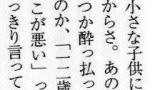 小さな子供に
からさ。あの
つか酔っ払っ
のか、「一二歳
こが悪い」っ
っきり言って